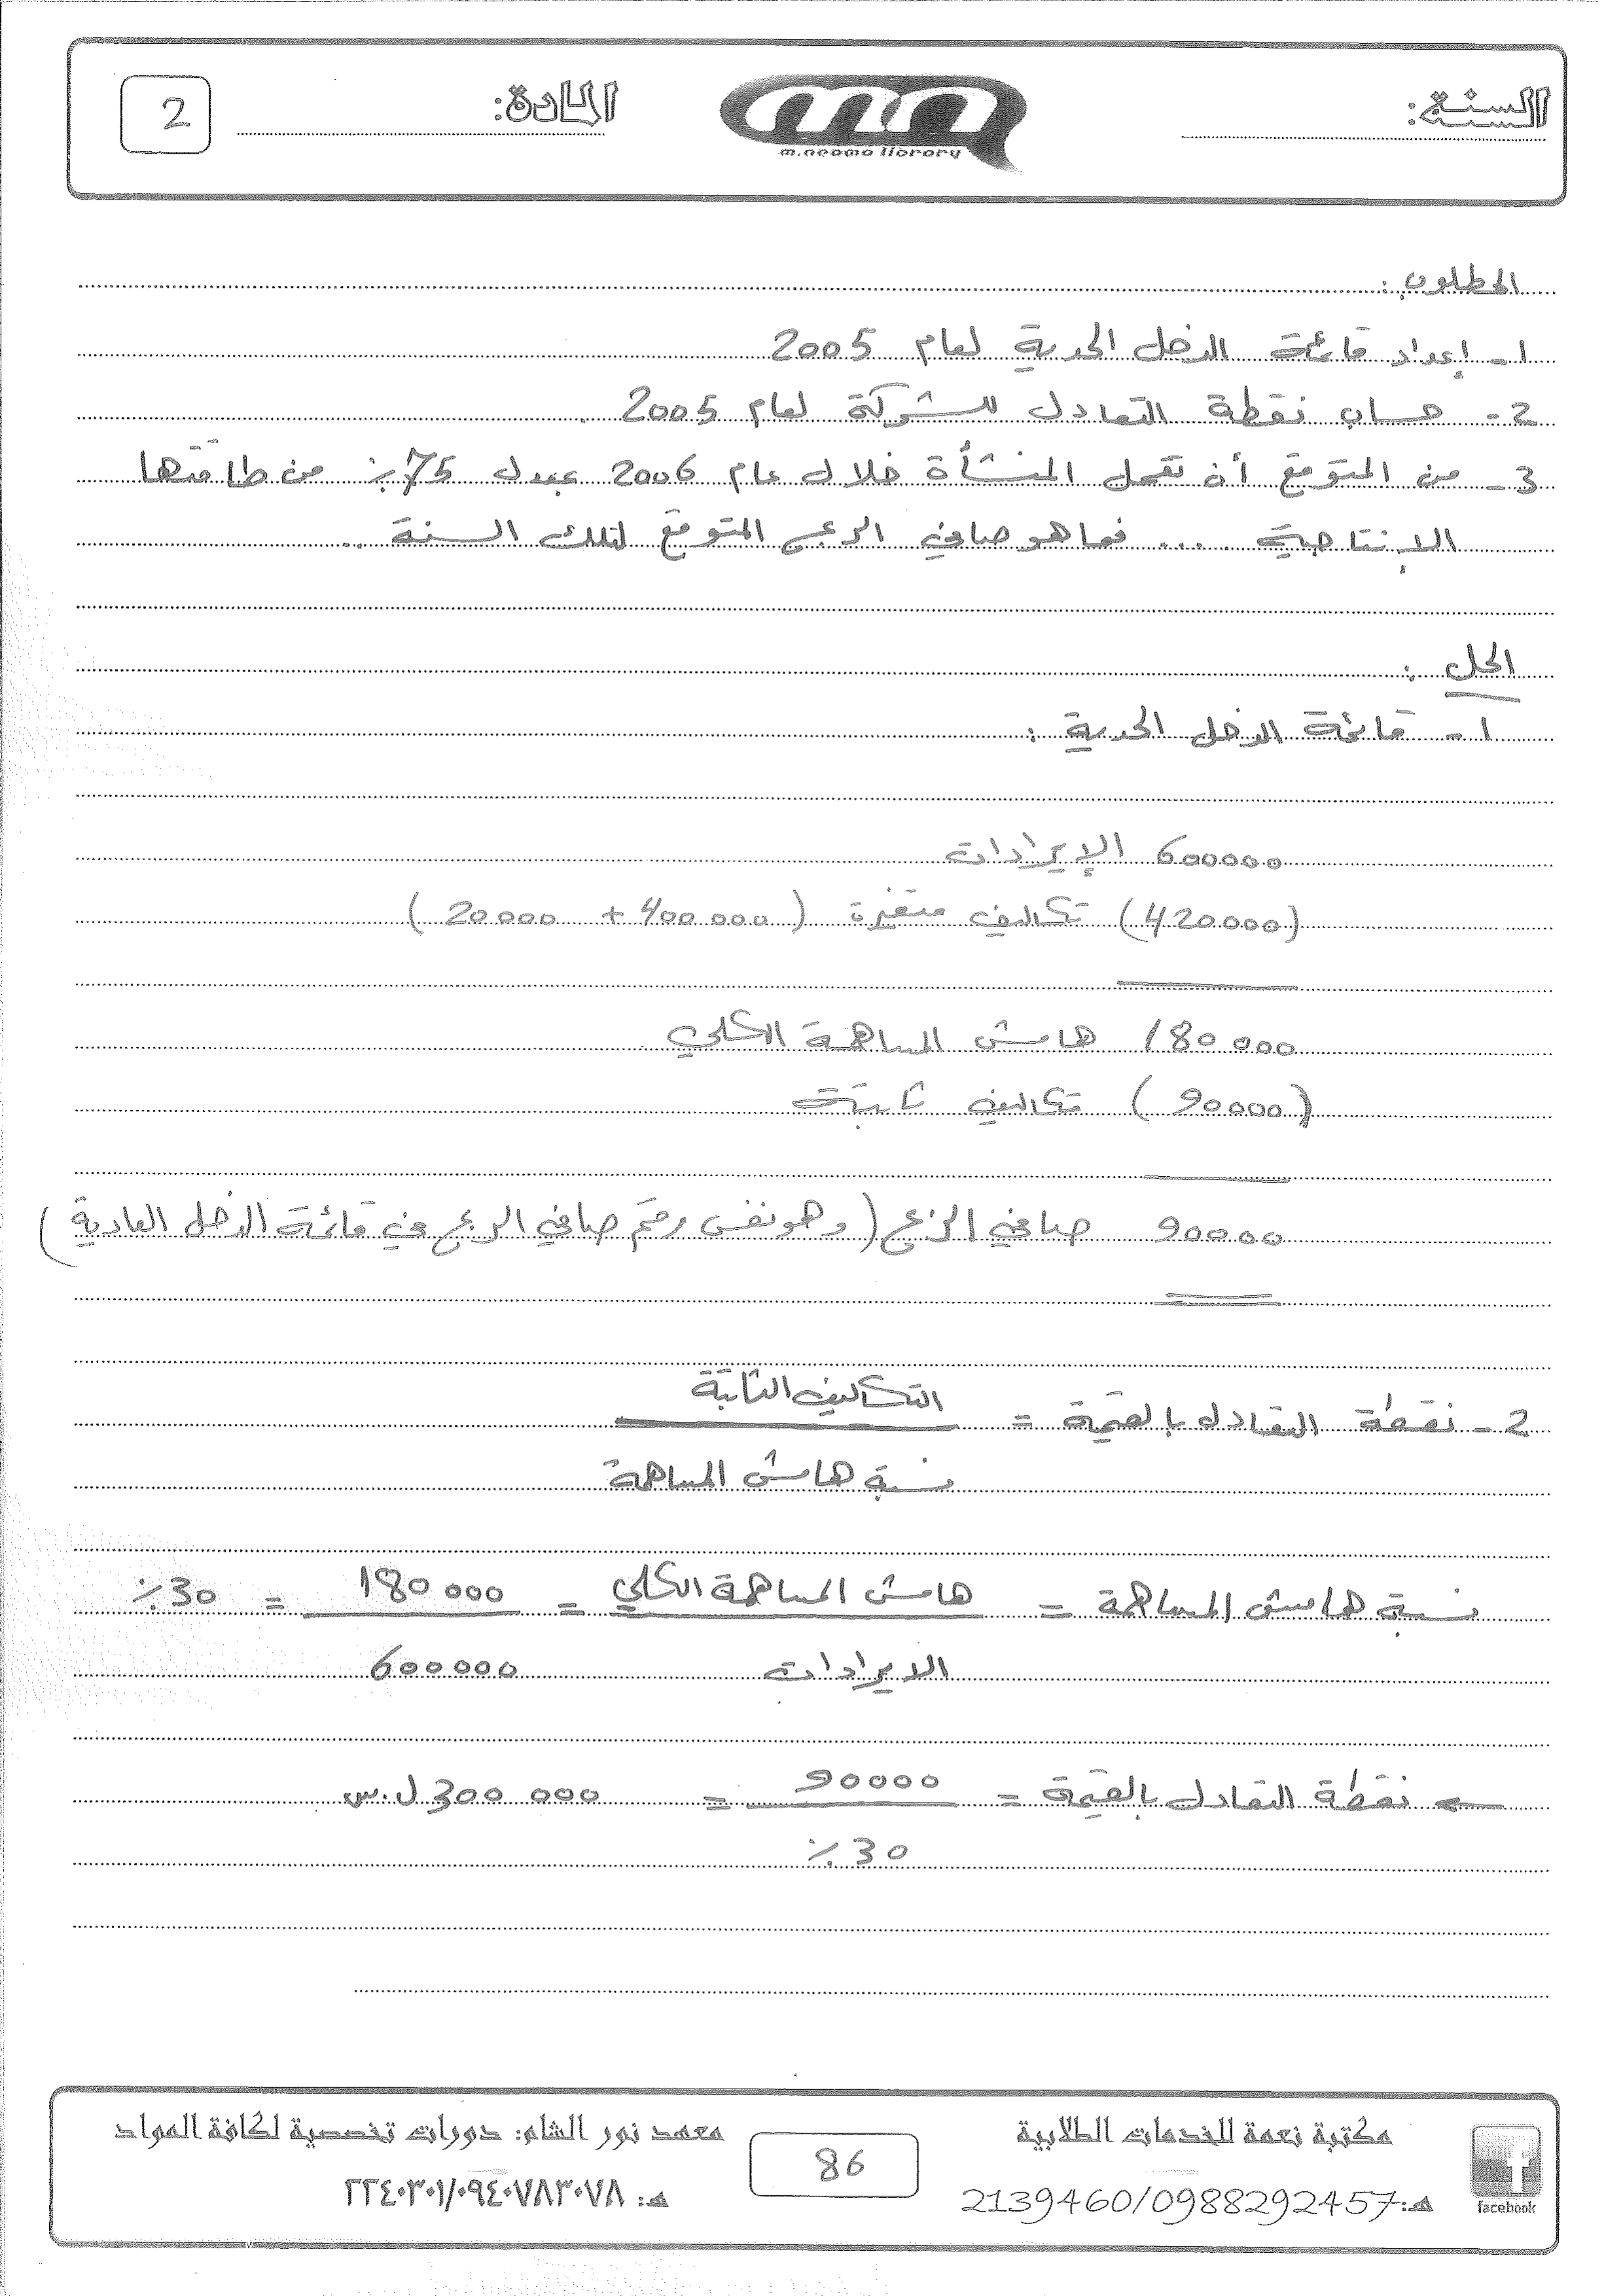 السنة:
m.neama library
المادة:
2
المطلوب:
1- إعداد قائمة الدخل الحدية لعام 2005
2- حساب نقطة التعادل للشركة لعام 2005.
3- من المتوقع أن تعمل المنشأة خلال عام 2006 بمعدل 75٪ من طاقتها
الإنتاجية .... فما هو صافي الربح المتوقع لتلك السنة ..
الحل:
1- قائمة الدخل الحدية:
600000 الإيرادات
(420000) تكاليف متغيرة (400000 + 20000)
180000 هامش المساهمة الكلي.
(90000) تكاليف ثابتة
90000 صافي الربح (وهو نفس رقم صافي الربح في قائمة الدخل العادية)
2- نقطة التعادل بالقيمة = التكاليف الثابتة
نسبة هامش المساهمة
نسبة هامش المساهمة = هامش المساهمة الكلي = 180000 = 30٪
الايرادات 600000
← نقطة التعادل بالقيمة = 90000 = 300000 ل.س
30٪
مكتبة نعمة للخدمات الطلابية
هـ: 2139460/0988292457
facebook
86
معهد نور الشام: دورات تخصصية لكافة المواد
هـ: ٢٢٤٠٣٠١/٠٩٤٠٧٨٣٠٧٨